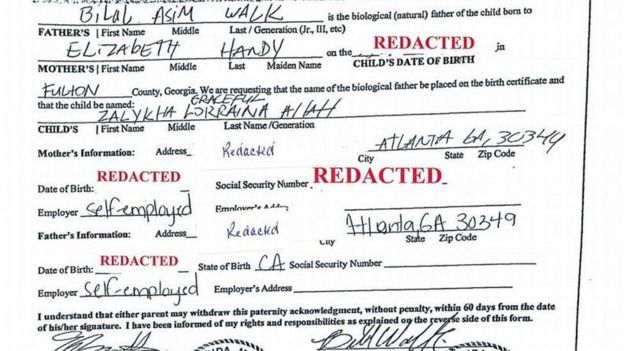 BILAL ASIM WALK is the biological (natural) father of the child born to
FATHER'S | First Name Middle Last / Generation (Jr., III, etc)
ELIZABETH HANDY on the REDACTED in
MOTHER'S | First Name Middle Last Maiden Name CHILD'S DATE OF BIRTH
FULTON County, Georgia. We are requesting that the name of the biological father be placed on the birth certificate and
that the child be named: GRACEFUL
ZALYKHA LORRAINA Allah
CHILD'S | First Name Middle Last Name/Generation
ATLANTA GA, 30349
Mother's Information: Address Redacted City State Zip Code
Date of Birth: REDACTED Social Security Number REDACTED
Employer self-employed Employer's
Father's Information: Address Redacted Atlanta, GA 30349
City State Zip Code
Date of Birth: REDACTED State of Birth CA Social Security Number
Employer self-employed Employer's Address
I understand that either parent may withdraw this paternity acknowledgment, without penalty, within 60 days from the date
of his/her signature. I have been informed of my rights and responsibilities as explained on the reverse side of this form.